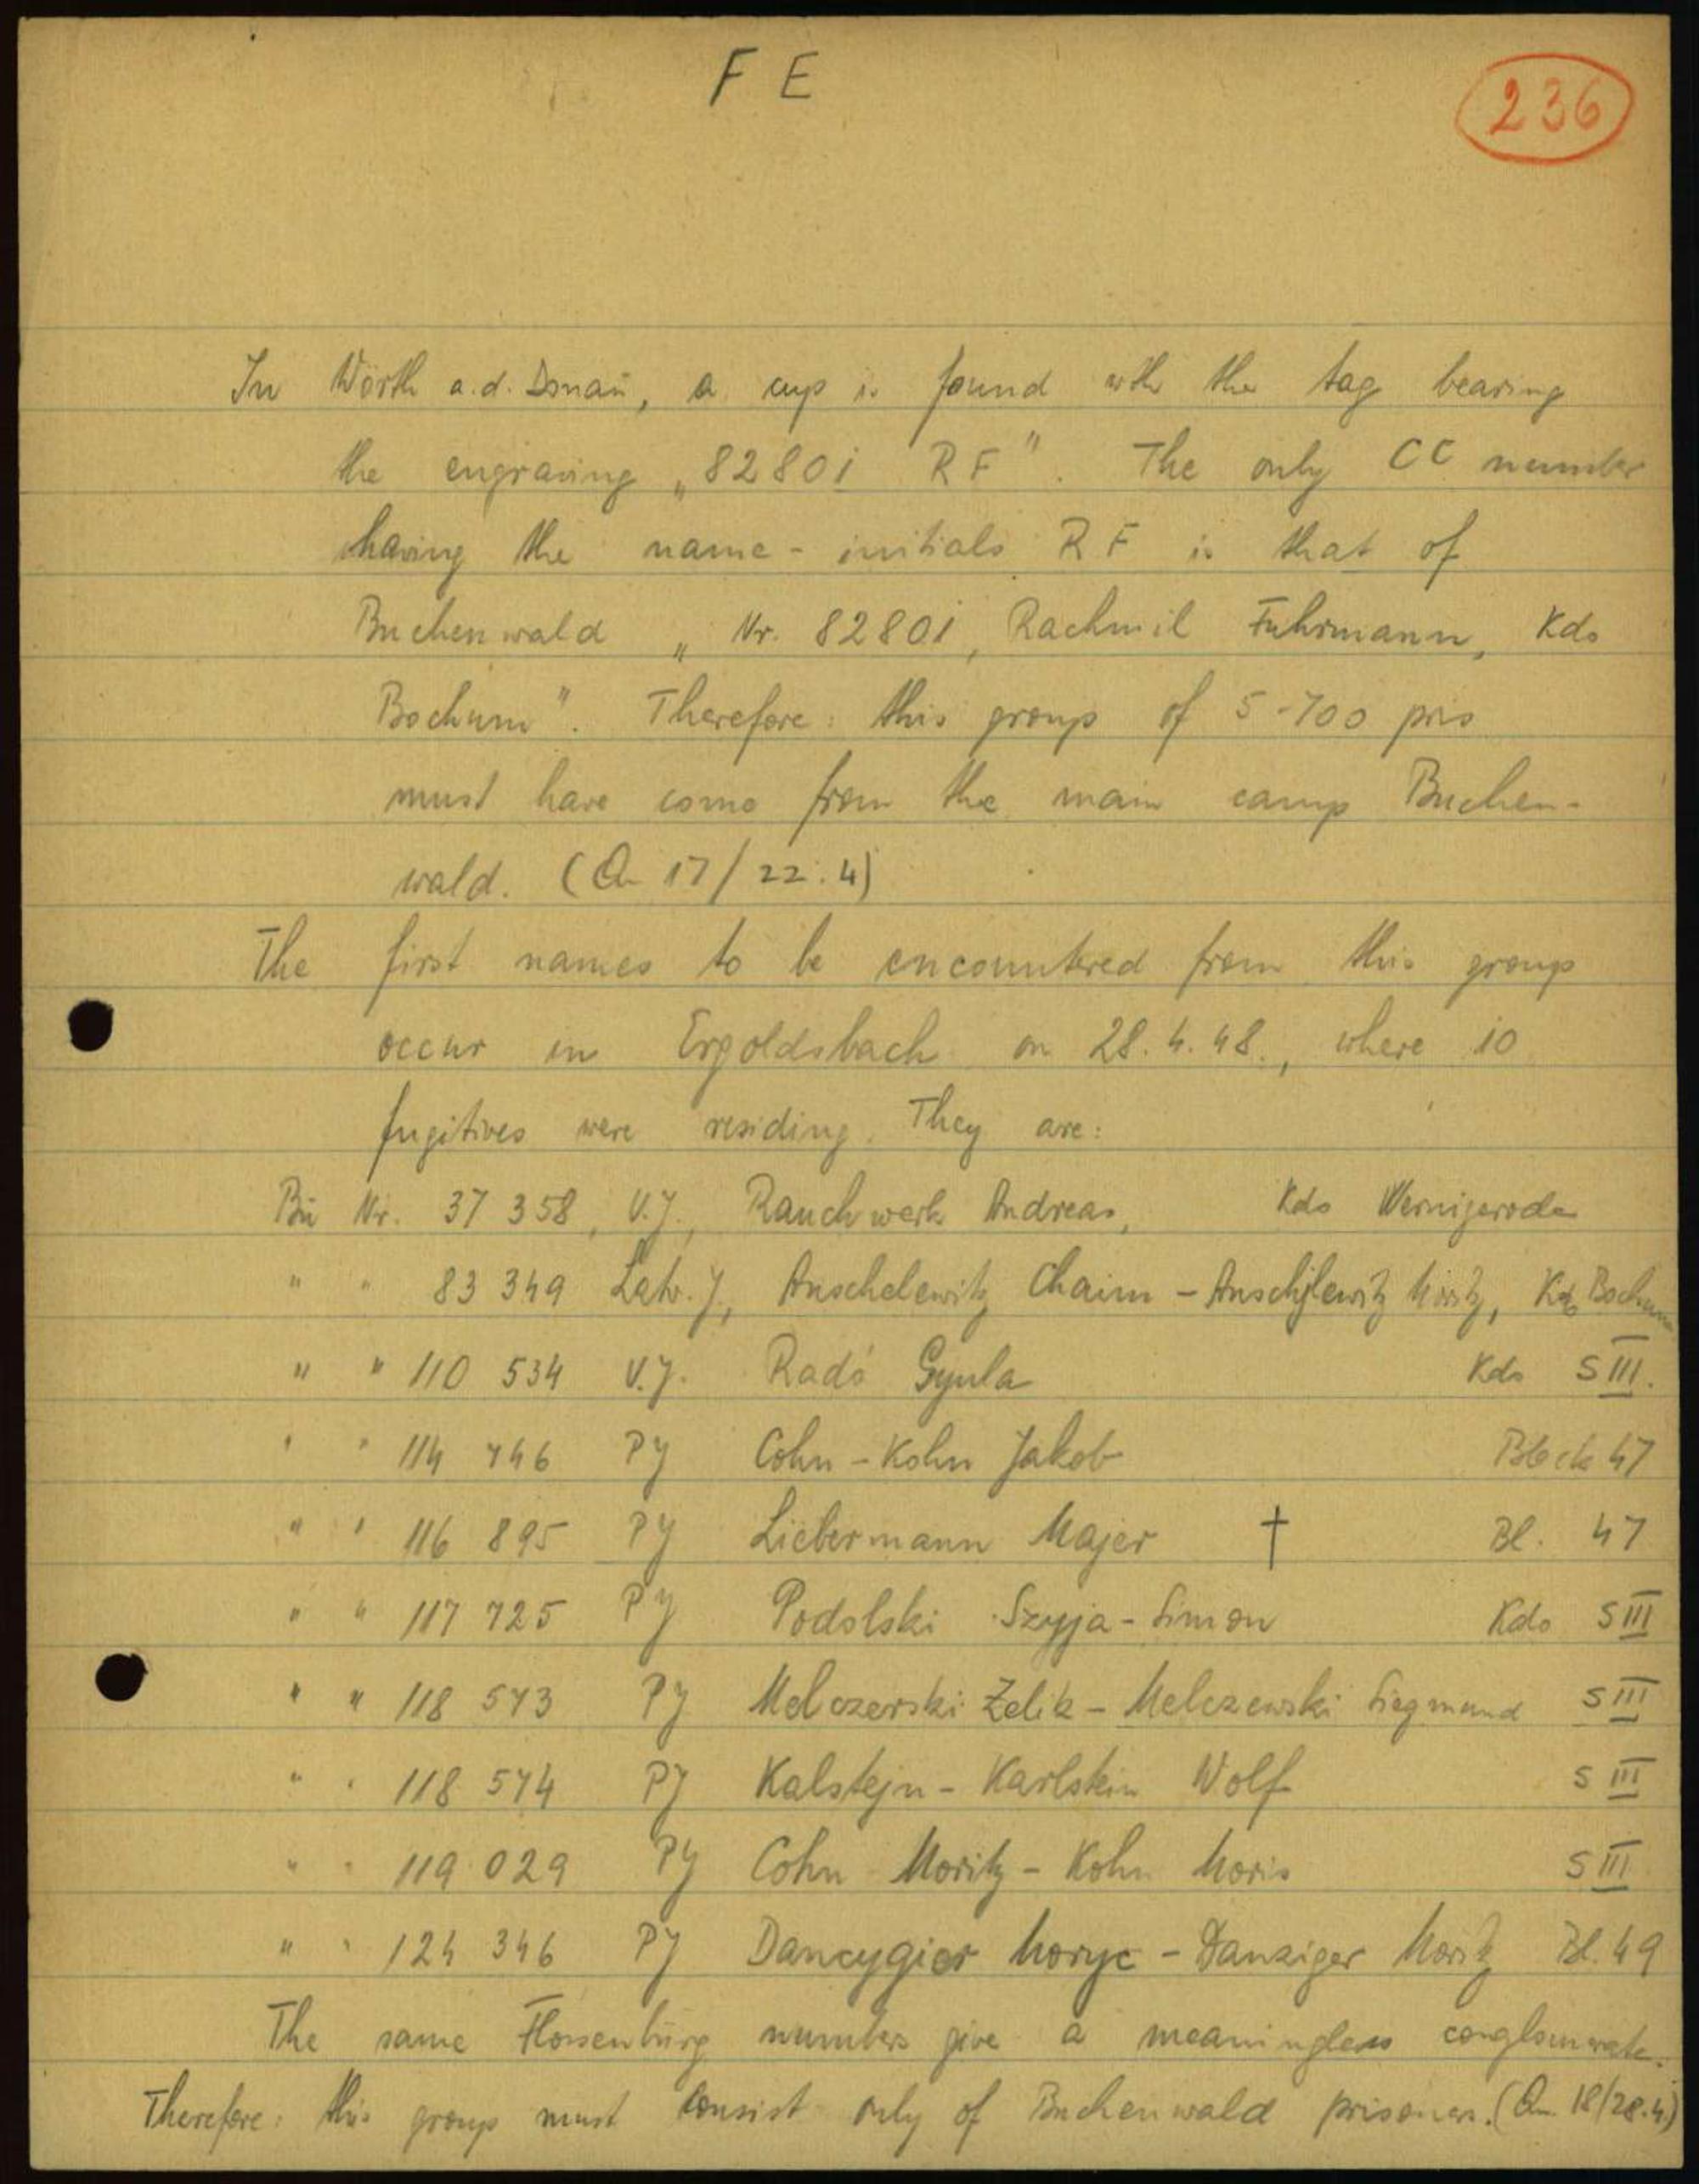 F E
236
In Wörth a.d. Donau, a cup is found with the tag bearing
the engraving „82801 RF". The only CC number
having the name-initials RF is that of
Buchenwald „Nr. 82801, Rachmil Fuhrmann, Kdo
Bochum". Therefore: this group of 5-700 pris
must have come from the main camp Buchen-
wald. (Qu 17/22.4)
The first names to be encountered from this group
occur in Ergoldsbach on 28.4.48., where 10
fugitives were residing. They are:
Bu Nr. 37 358, U.J., Rauchwerk Andreas, Kdo Wernigerode
" " 83 349 Latv. J., Anschelewitz Chaim - Anschilewitz Moritz, Kdo Bochum
" " 110 534 U.J. Radó Gyula Kdo S III.
" " 114 746 PJ Cohn - Kohn Jakob Block 47
" " 116 895 PJ Liebermann Majer † Bl. 47
" " 117 725 PJ Podolski Szyja - Simon Kdo S III
" " 118 573 PJ Melczerski Zelik - Melczewski Siegmund S III
" " 118 574 PJ Kalstejn - Karlstein Wolf S III
" " 119 029 PJ Cohn Moritz - Kohn Moris S III
" " 124 346 PJ Dancygier Moryc - Danziger Moritz Bl. 49
The same Flossenbürg numbers give a meaningless conglomerate.
Therefore: this group must consist only of Buchenwald prisoners. (Qu 18/28.4.)